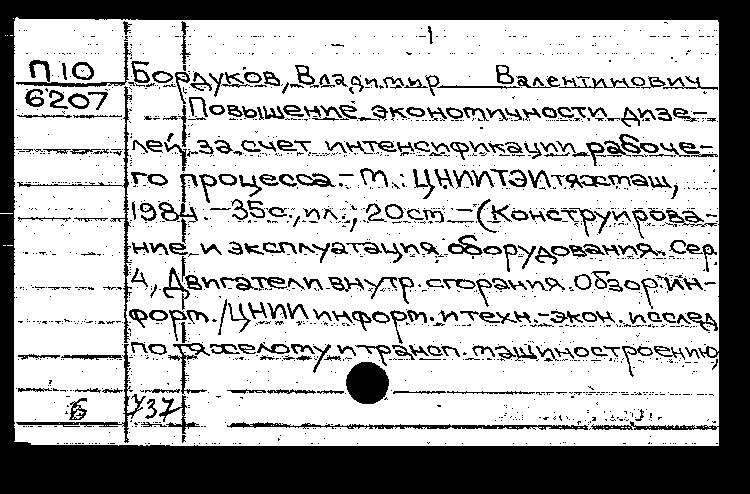 П10 Бордуков, Владимир Валентинович
6207 Повышение экономичности дизе-
лей за счет интенсификации рабоче-
го процесса. – М.: ЦНИИТЭИтяжмаш,
1984. – 35с., ил.; 20см – (Конструирова-
ние и эксплуатация оборудования. Сер.
4, Двигатели внутр. сгорания. Обзор. ин-
форм./ЦНИИ информ. и техн.-экон. исслед.
по тяжелому и трансп. машиностроению,
Б 737